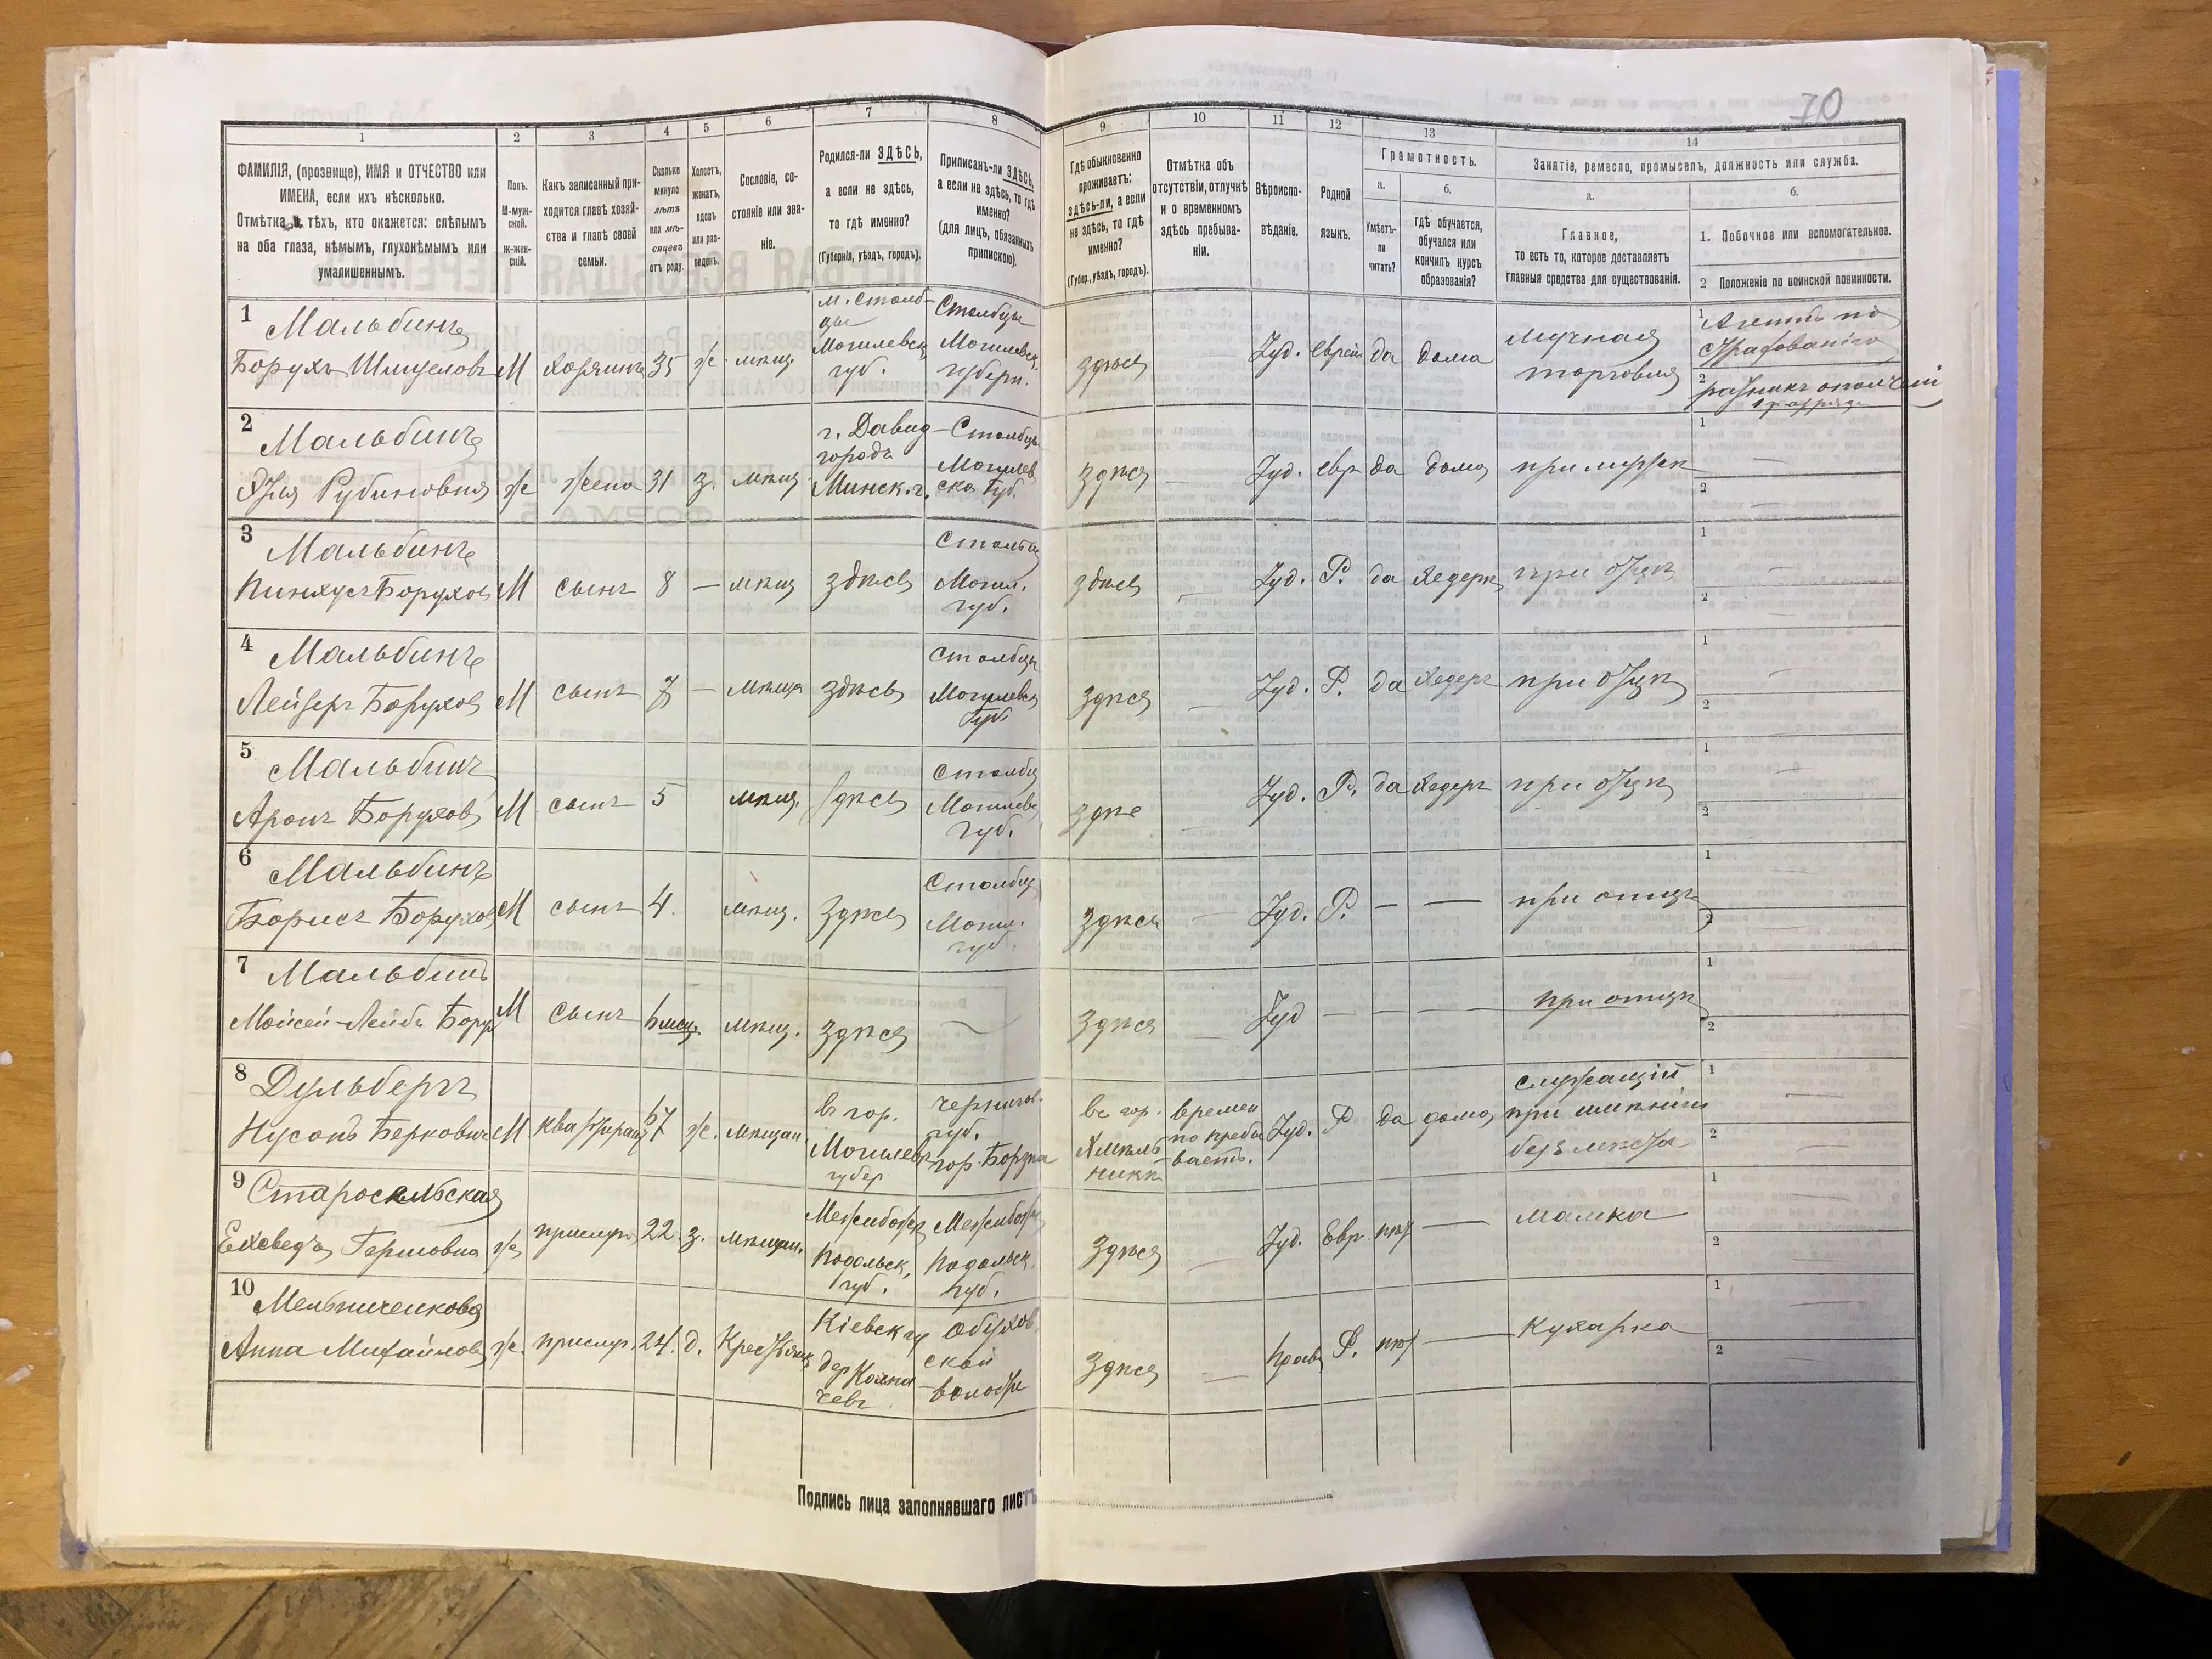 70
1
2
3
4
5
6
7
8
9
10
11
12
13
14
ФАМИЛІЯ, (прозвище), ИМЯ и ОТЧЕСТВО или
ИМЕНА, если ихъ нѣсколько.
Отмѣтка о тѣхъ, кто окажется: слѣпымъ
на оба глаза, нѣмымъ, глухонѣмымъ или
умалишеннымъ.
Полъ.
М-муж-
ской.
Ж-жен-
скій.
Какъ записанный при-
ходится главѣ хозяй-
ства и главѣ своей
семьи.
Сколько
минуло
лѣтъ
или мѣ-
сяцевъ
отъ роду.
Холостъ,
женатъ,
вдовъ
или раз-
веденъ.
Сословіе, со-
стояніе или зва-
ніе.
Родился-ли ЗДѢСЬ,
а если не здѣсь,
то гдѣ именно?
(Губернія, уѣздъ, городъ).
Приписанъ-ли ЗДѢСЬ,
а если не здѣсь, то гдѣ
именно?
(для лицъ, обязанныхъ
припискою).
Гдѣ обыкновенно
проживаетъ:
здѣсь-ли, а если
не здѣсь, то гдѣ
именно?
(Губер., уѣздъ, городъ).
Отмѣтка объ
отсутствіи, отлучкѣ
и о временномъ
здѣсь пребыва-
ніи.
Вѣроиспо-
вѣданіе.
Родной
языкъ.
Грамотность.
а.
б.
Умѣетъ-
ли
читать?
гдѣ обучается,
обучался или
кончилъ курсъ
образованія?
Занятіе, ремесло, промыселъ, должность или служба.
а.
б.
Главное,
то есть то, которое доставляетъ
главныя средства для существованія.
1. Побочное или вспомогательное.
2 Положеніе по воинской повинности.
1 Мальбинъ
Борухъ Шмуеловъ М хозяинъ 35 ж. мѣщ.
м. Столб-
цы
Могилевск
губ.
Столбцы
Могилевск.
губерн.
здѣсь Іуд. еврей да дома
мучная
торговля
1 Агентъ по
страхованію
2 ратникъ ополченій
1 разряда
2 Мальбинъ
Рубиновна ж жена 31 з. мѣщ
г. Давид-
городъ
Минск. г.
Столбцы
Могилев
ска Губ.
здѣсь Іуд. евр да дома при мужѣ
1
2
3 Мальбинъ
Пинхусъ Борухов М сынъ 8 — мѣщ здѣсь
Столбцы
Могил.
губ.
здѣсь Іуд. Р. да Хедеръ при отцѣ
1
2
4 Мальбинъ
Лейзеръ Борухов М сынъ 7 — мѣща здѣсь
Столбцы
Могилевск
Губ.
здѣсь Іуд. Р. да Хедеръ при отцѣ
1
2
5 Мальбинъ
Аронъ Борухов М сынъ 5 мѣщ. здѣсь
Столбц
Могилевс
Губ.
здѣс Іуд. Р. да Хедеръ при отцѣ
1
2
6 Мальбинъ
Борисъ Борухов М сынъ 4. мѣщ. здѣсь
Столбцы
Могил.
губ.
здѣсь — Іуд. Р. — — при отцѣ
1
2
7 Мальбинъ
Мойсей-Лейба Борух М сынъ 6 мѣс. мѣщ. здѣсь
здѣсь Іуд — — — при отцѣ
1
2
8 Дульбергъ
Нусонъ Берковичъ М 67 ж. мѣщан.
въ гор.
Могилевѣ
губер
Чернигов.
губ.
гор. Борзна
въ гор.
Хмѣль
никѣ
времен
но пребы
ваетъ.
Іуд. Р да дома
служащій
при имѣніи
безъ мѣста
1
2
9 Старосельская
Гершовна ж прислуг. 22. з. мѣщан.
Межибожъ
Подольск.
губ.
Межибожъ
Подольск.
губ.
здѣсь Іуд. Евр нѣт — мамка
1
2
10 Мельниченкова
Анна Михайлов ж. прислуг. 24. д. Крестьянк
Кіевск гу
дер
Обухов
ской
волости
здѣсь Прав Р. нѣт — Кухарка
1
2
Подпись лица заполнявшаго листъ